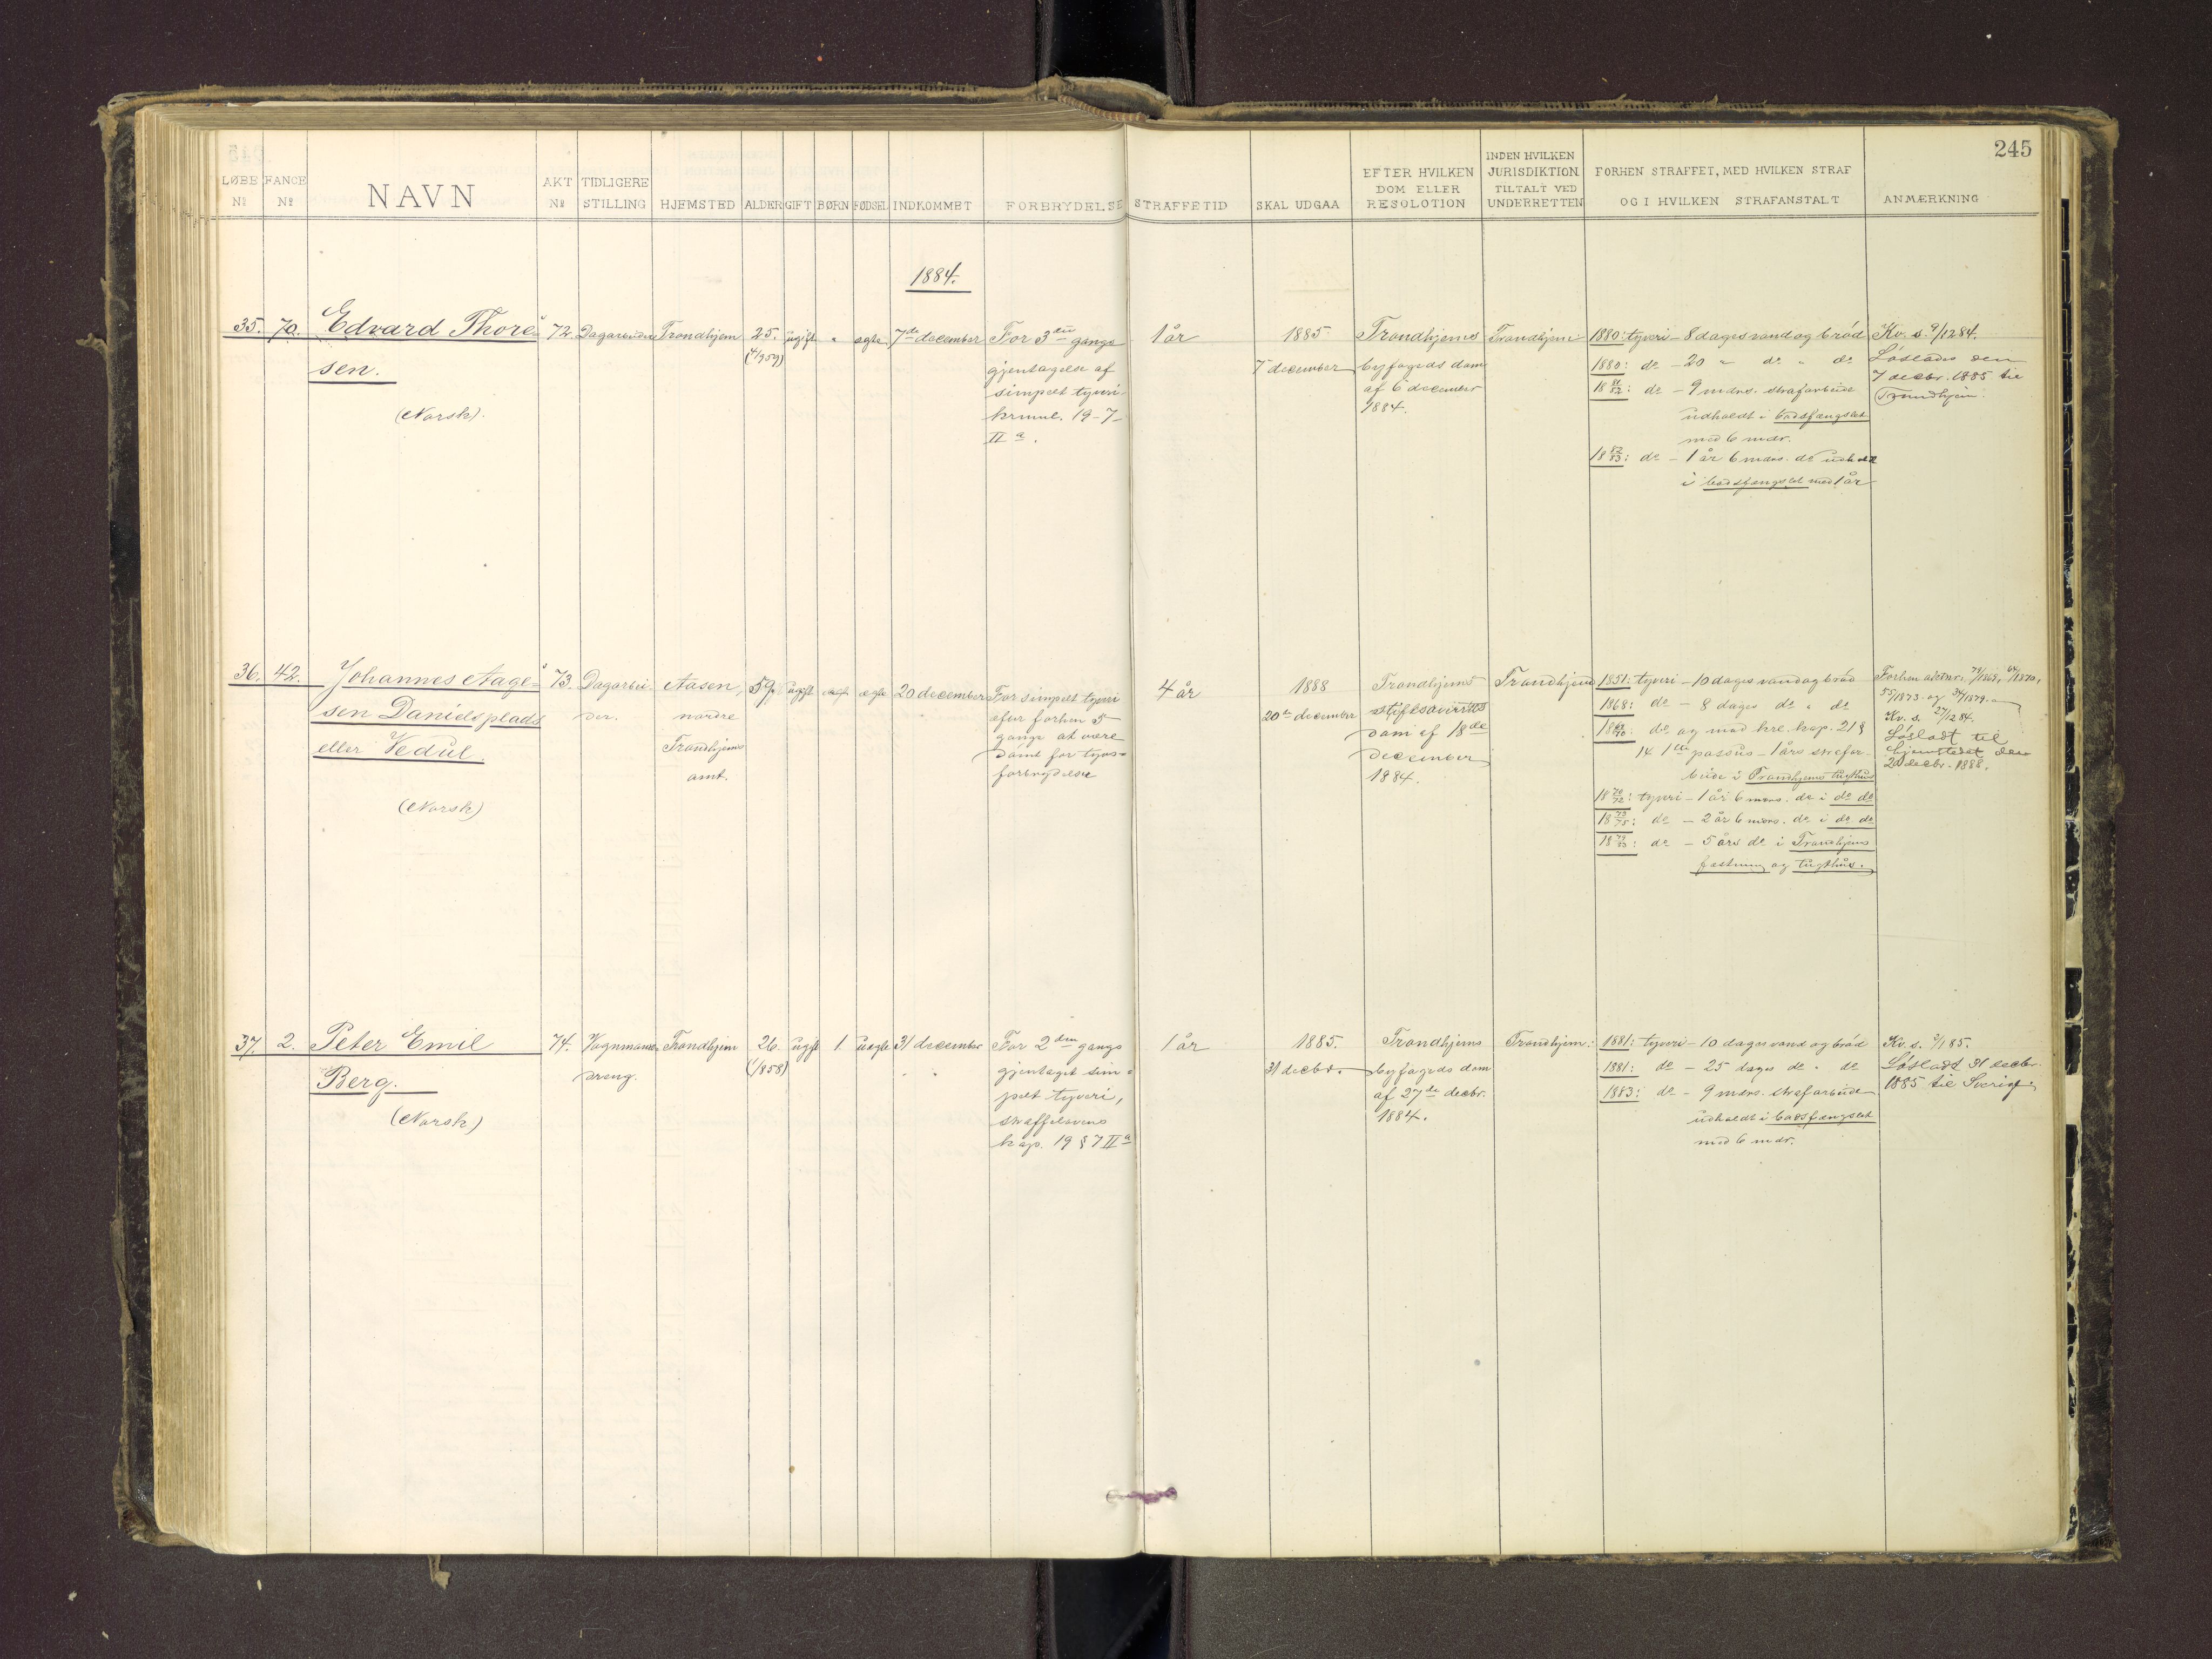 245
LØBE No
FANGE No
NAVN
AKT No
TIDLIGERE STILLING
HJEMSTED
ALDER
GIFT
BØRN
FØDSEL
INDKOMMET
FORBRYDELSE
STRAFFETID
SKAL UDGAA
EFTER HVILKEN DOM ELLER RESOLOTION
INDEN HVILKEN JURISDIKTION TILTALT VED UNDERRETTEN
FORHEN STRAFFET, MED HVILKEN STRAF OG I HVILKEN STRAFANSTALT
ANMÆRKNING
1884.
35.
70.
Edvard Thore=
sen.
(Norsk).
72
Dagarbeider
Trondhjem
25.
(4/959)
ugift
"
ægte
7de december
For 3die gangs
gjentagelse af
simpelt tyveri.
krmnl. 19-7-
II a.
1 år
1885
7 december
Trondhjems
byfogeds dom
af 6 december
1884.
Trondhjem
1880: tyveri - 8 dages vand og brød
1880: do - 20 " do " do
18 81/82: do - 9 mdrs. strafarbeide
udholdt i bodsfængslet
med 6 mdr.
18 82/83: do - 1 år 6 mdrs. do udholdt
i bodsfængslet med 1 år
Kv. s. 9/1284.
Løslades den
7 decbr. 1885 til
Trondhjem.
36.
42.
Johannes Aage=
sen Danielsplads
eller Vedul.
(Norsk)
73.
Dagarbei-
der.
Aasen,
nordre
Trondhjems
amt.
59.
ugift
ægte
20 december
For simpelt tyveri
efter forhen 5
gange at være
dømt for tyvs-
forbrydelse
4 år
1888
20de december
Trondhjems
stiftsoverrets
dom af 18de
december
1884.
Trondhjem
1851: tyveri - 10 dages vand og brød
1868: do - 8 dages do " do
18 69/70: do og mod krl. kap. 21 §
14 1ste passus - 1 års strafar-
beide i Trondhjems tugthus
18 70/72: tyveri - 1 år 6 mdrs. do i do do
18 73/75: do - 2 år 6 mdrs. do i do do
18 79/83: do - 5 års do i Trondhjems
fæstning og tugthus.
Forhen aktnr. 79/1869, 64/1870,
55/1873 og 34/1879.
Kv. s. 27/1284.
Løsladt til
hjemstedet den
20 decbr. 1888.
37.
2.
Peter Emil
Berg.
(Norsk)
74.
Vognmands-
dreng.
Trondhjem
26
(1/858)
ugift
1.
uægte
31 december
For 2den gangs
gjentaget sim=
pelt tyveri,
straffelovens
kap. 19 § 7 II a
1 år
1885.
31 decbr.
Trondhjems
byfogeds dom
af 27de decbr.
1884.
Trondhjem.
1881: tyveri - 10 dages vand og brød
1881: do - 25 dages do " do
1883: do - 9 mdrs. strafarbeide
udholdt i bodsfængslet
med 6 mdr.
Løsladt 31 decbr.
1885 til Sverig.